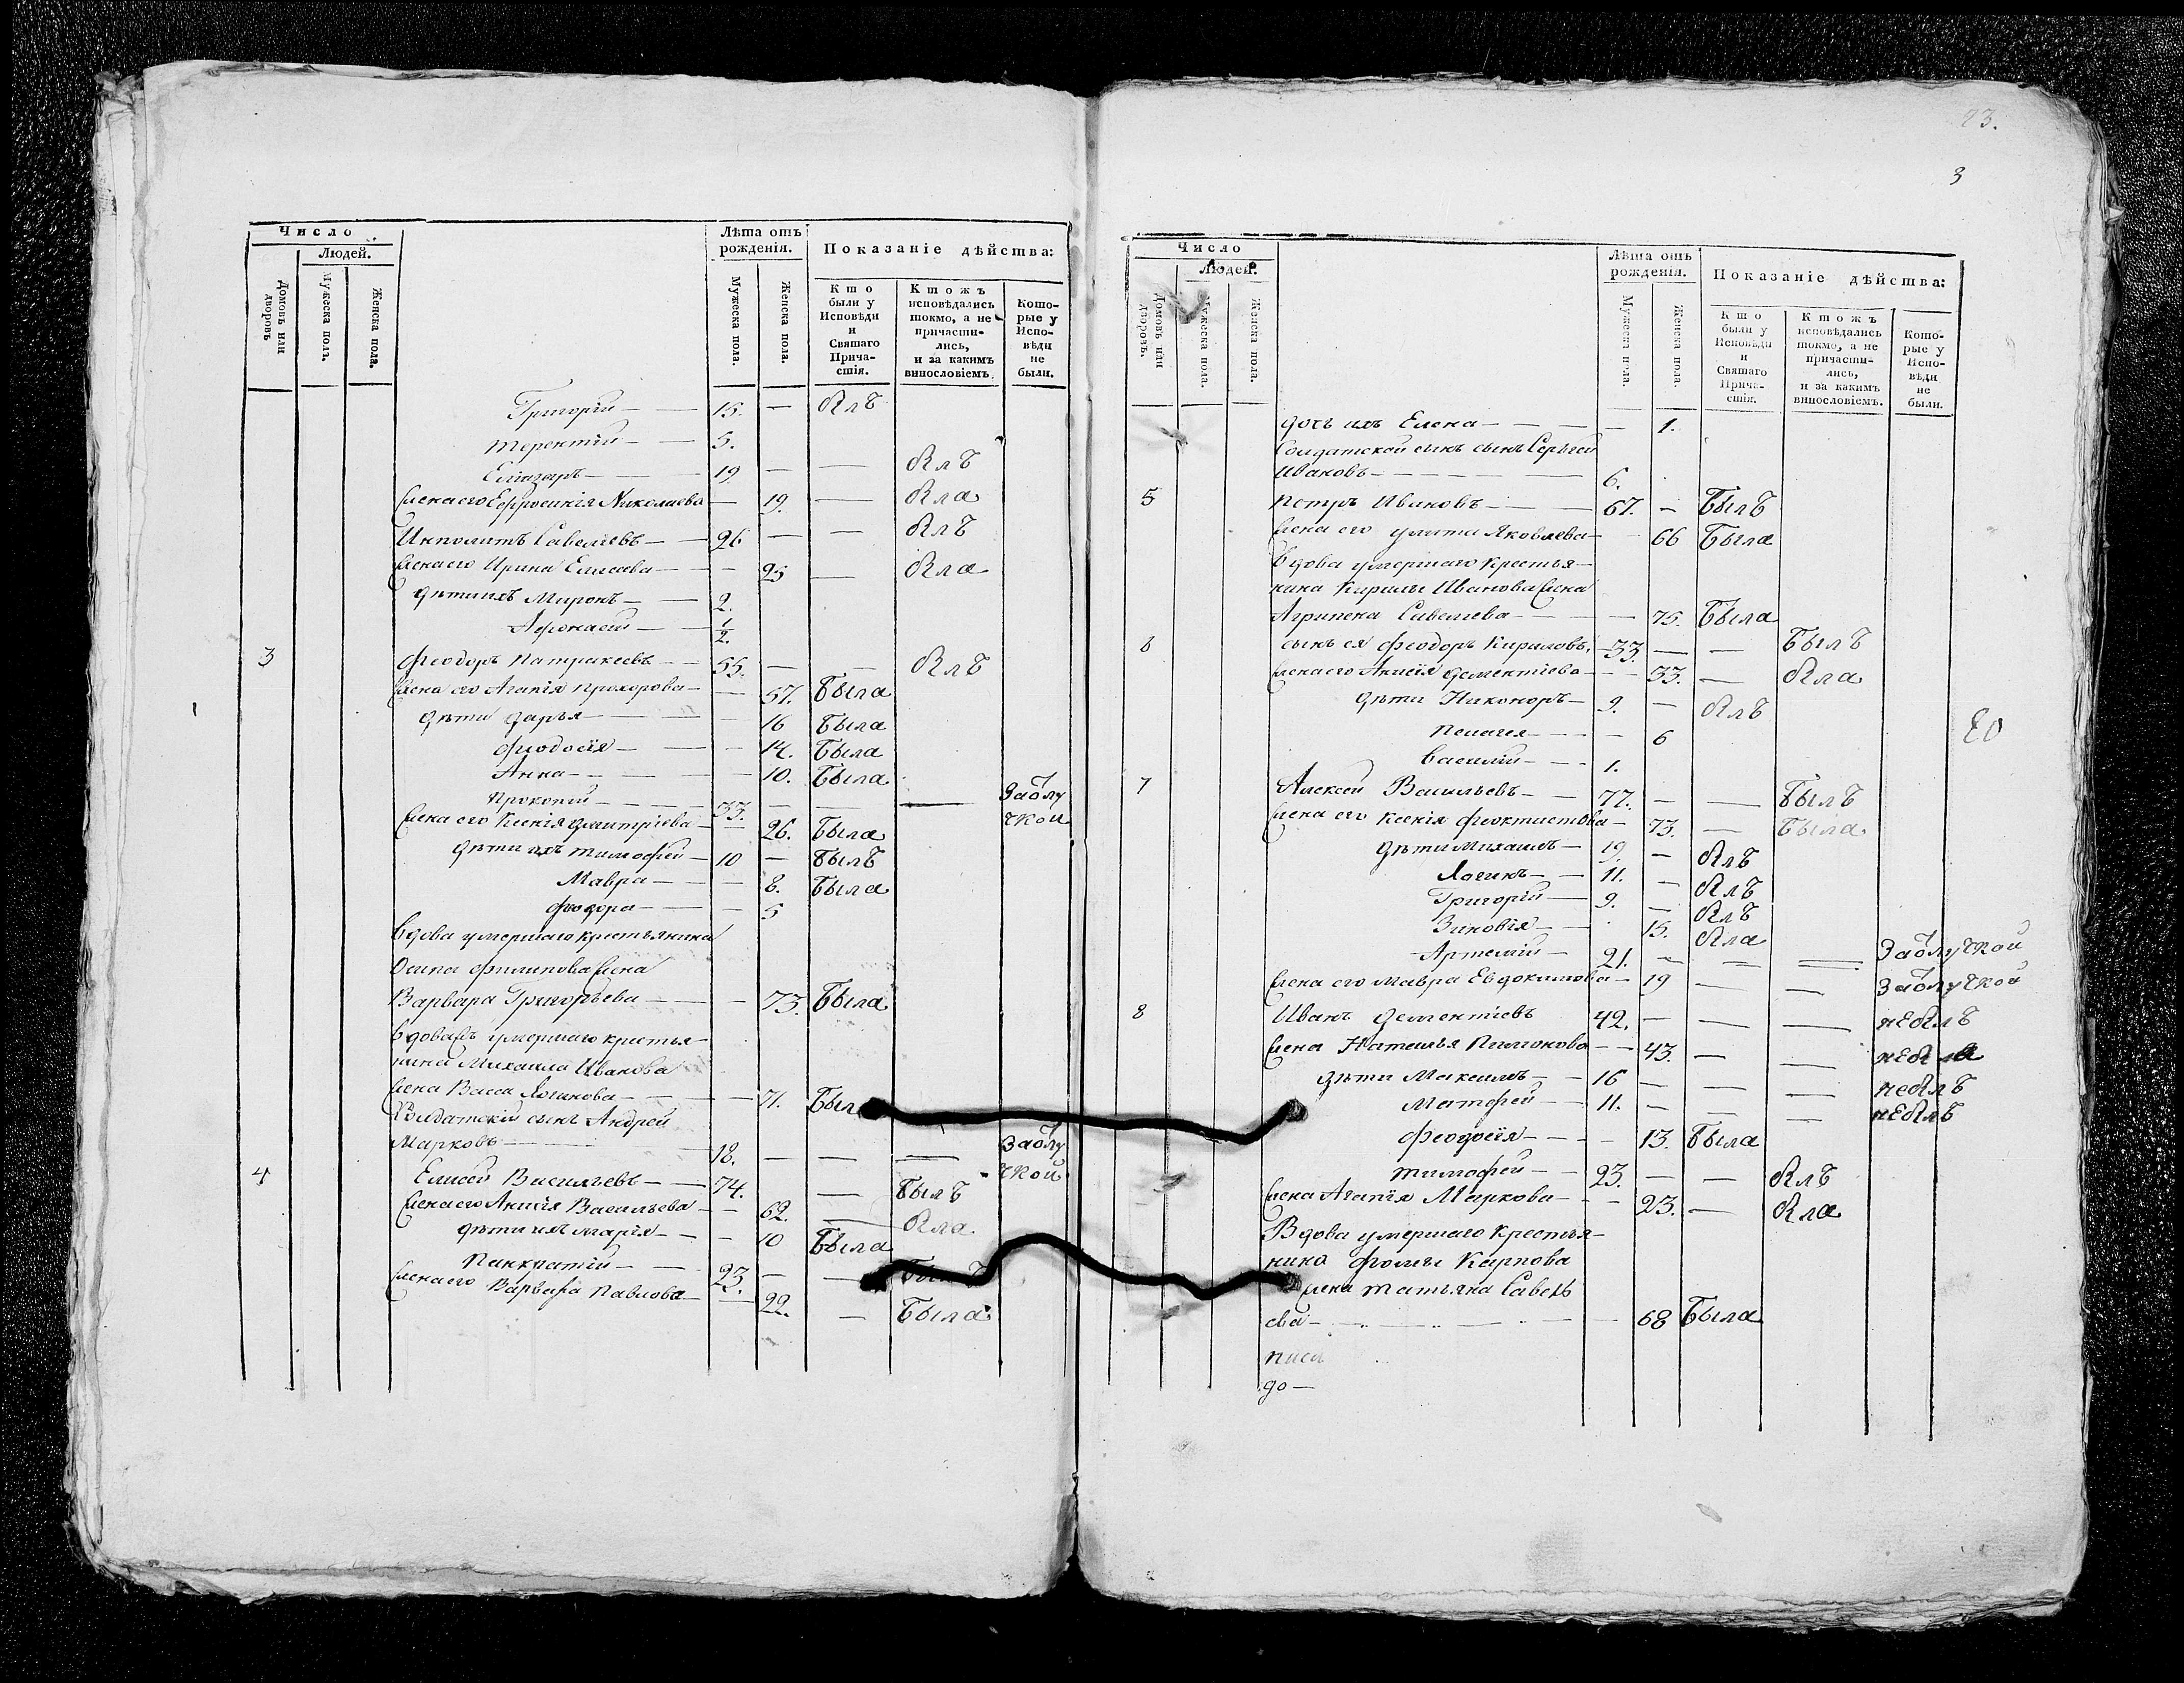 Число
Людей.
Домовъ или дворовъ
Мужеска пола.
Женска пола.
Лѣта отъ рожденія.
Мужеска пола.
Женска пола.
Показаніе дѣйства:
Кто были у Исповѣди и Святаго Прича-стія.
Ктожъ исповѣдались токмо, а не причасти-лись, и за какимъ винословіемъ.
Кото-рые у Испо-вѣди не были.
Григорій — — 15. — Ялъ
Терентій — — 5.
Елиазаръ — — 19 — — Ялъ
Жена его Ефросинія Николаева — 19. — Яла
Ипполитъ Савельевъ — — 26 — — Ялъ
Жена его Ирина Елисеева — — 25 — Яла
Дѣти ихъ Миронъ — — 2.
Афонасій — — 1/2.
3 Феодоръ Патракеевъ — — 55. — — Ялъ
Жена его Агапія Прохорова — — 57. Была
Дѣти Дарья — — — 16 Была
Феодосія — — — 14. Была
Анна — — — — 10. Была
Прокопій — — — — 33. — — — Заблу
Жена его Ксенія Дмитріева — — 26. Была чкой
Дѣти ихъ Тимофей — 10 — Былъ
Мавра — — — 8. Была
Феодора — — — 5
Вдова умершаго крестьянина
Осипа Филипова Жена
Варвара Григорьева — — — 73. Была
Вдова Жъ умершаго крестья-
нина Михаила Иванова
Жена Васса Логинова — — — 71. Был
Солдатскій сынъ Андрей
Марковъ — — 18. — — — Заблу
чкой
4 Елисей Васильевъ — — 74. — Былъ
Жена его Анисія Васильева — — 62. — Яла
Дѣти ихъ Марія — — 10 Была
Панкратій — — 23. — — Былъ
Жена его Варвара Павлова — — 22. — Была
23.
3
Число
Людей.
Домовъ или дворовъ.
Мужеска пола.
Женска пола.
Лѣта отъ рожденія.
Мужеска пола.
Женска пола.
Показаніе дѣйства:
Кто были у Исповѣди и Святаго Прича-стія.
Ктожъ исповѣдались токмо, а не причасти-лись, и за какимъ винословіемъ.
Кото-рые у Испо-вѣди не были.
дочь ихъ Елена — — — — 1.
Солдатской сынъ сынъ Сергей
Ивановъ — — — — 6.
5 Петръ Ивановъ — — — 67. — Былъ
Жена его Улита Яковлева — — 66 Была
Вдова умершаго Крестья-
нина Кирилы Иванова Жена
Агрипена Савельева — — — 75. Была
6 сынъ ея Феодоръ Кириловъ. — 33. — — Былъ
Жена его Анисія Дементіева — — 33. — Яла
Дѣти Никоноръ — 9. — Ялъ
Пелагея — — — 6
20
Василій — — 1.
7 Алексей Васильевъ — — 77. — — Былъ
Жена его Ксенія Феоктистова — 73. — Была
Дѣти Михаилъ — 19. — Ялъ
Логинъ — — 11. — Ялъ
Григорій — 9. — Ялъ
Зиновія — — 15. Яла
Артемій — 21. — — — Заблучкой
Жена его Мавра Евдокимова — 19 — — Заблучкой
8 Иванъ Дементіевъ 42. — — — неялъ
Жена Наталья Пимонова — — 43. — — неяла
Дѣти Максимъ — — 16 — — — неялъ
Матфей — — 11. — — — неялъ
Феодосія — — — 13. Была
Тимофей — — 23. — — Ялъ
Жена Агапія Маркова — — — 23. — Яла
Вдова умершаго Крестья-
нина Фомы Карпова
Жена Татьяна Савель
ева — — — — — 68 Была
Писа
до —